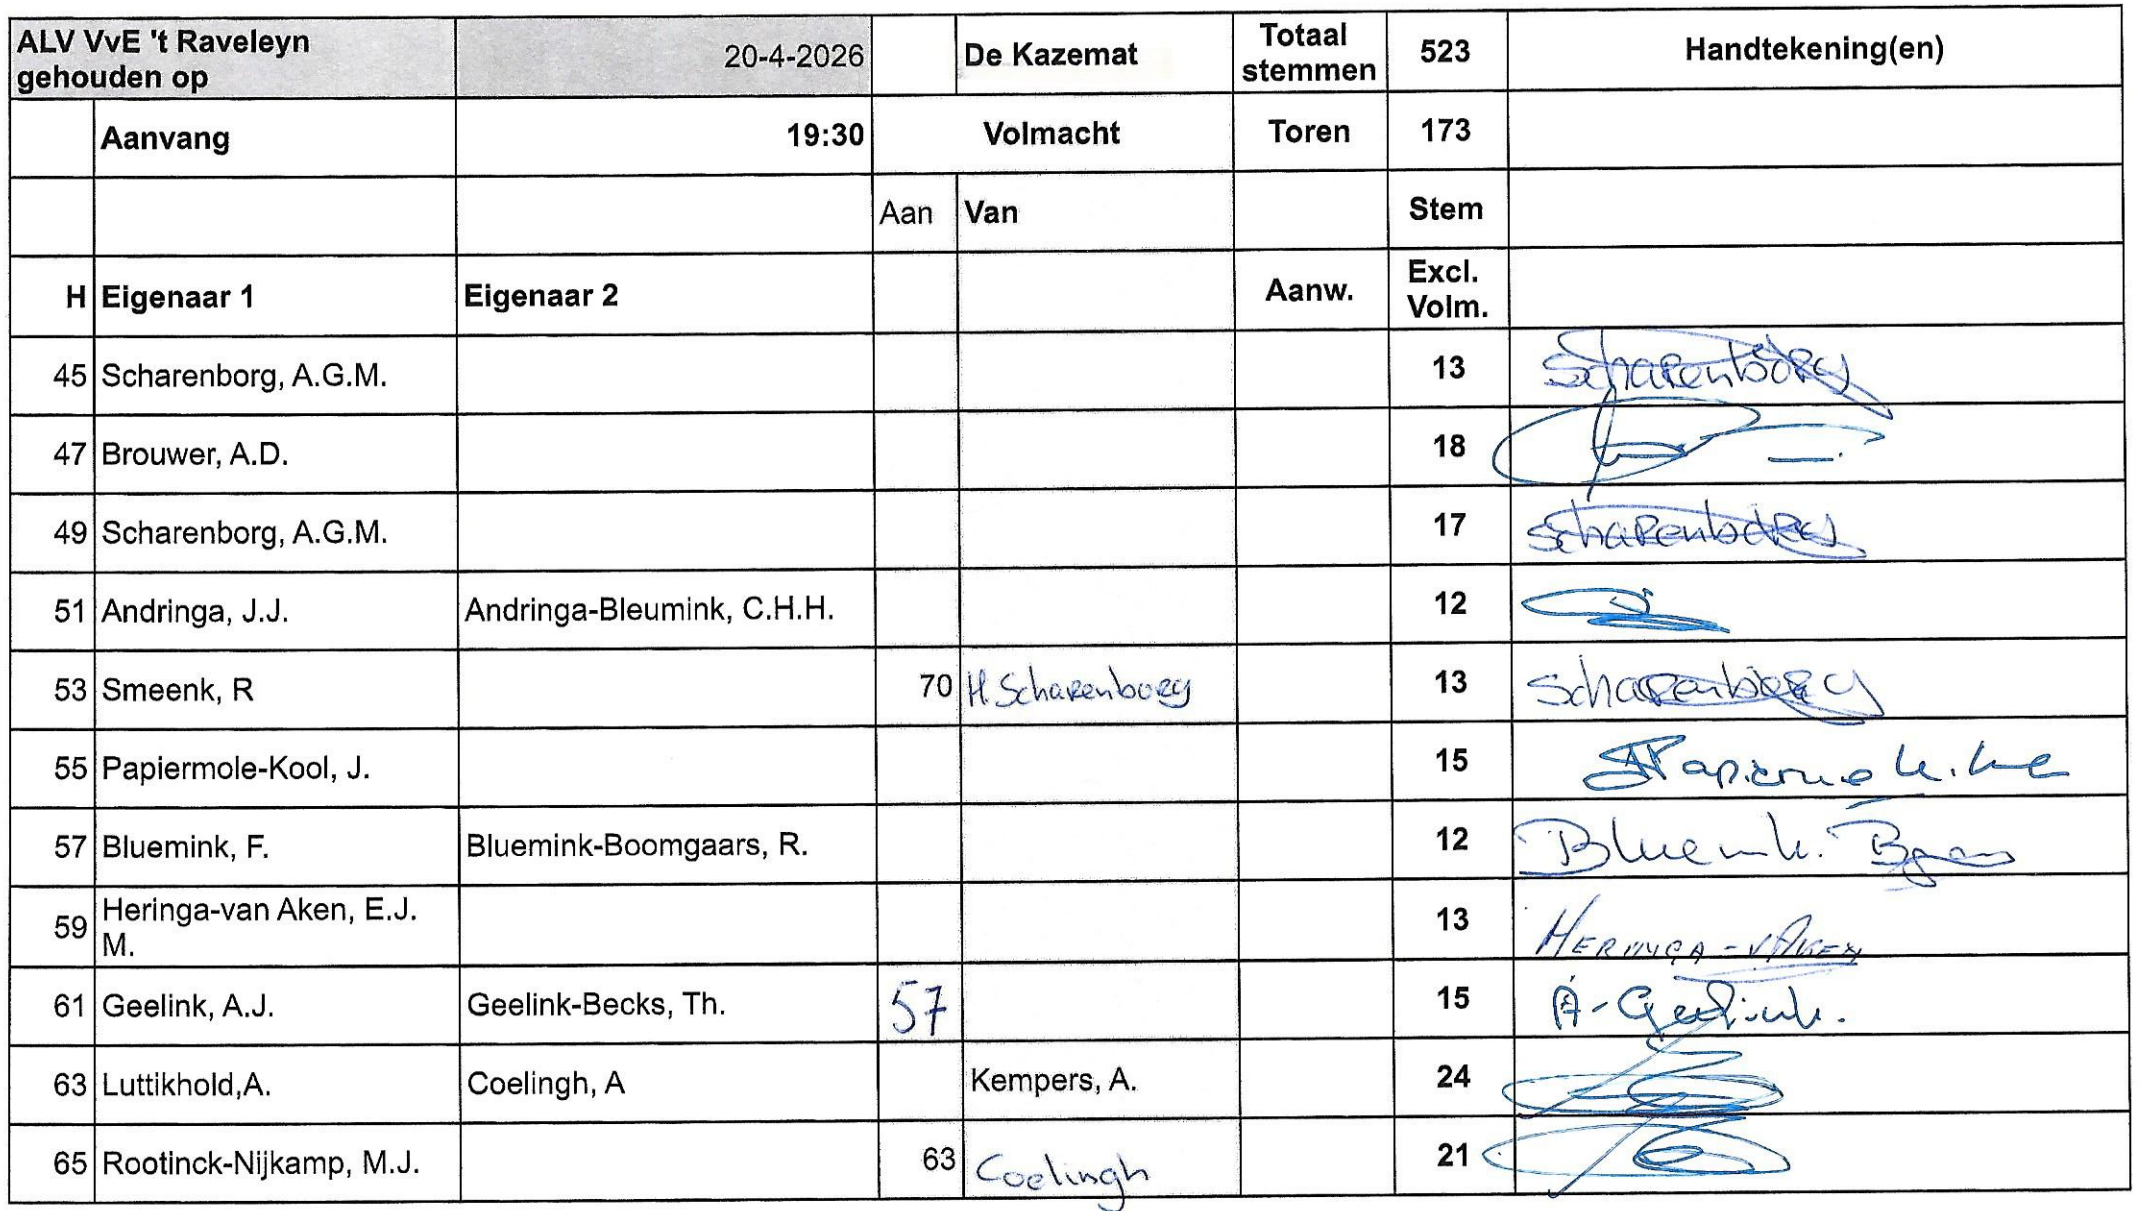 ALV VvE 't Raveleyn gehouden op 20-4-2026 De Kazemat Totaal stemmen 523 Handtekening(en)
Aanvang 19:30 Volmacht Toren 173
Aan Van Stem
H Eigenaar 1 Eigenaar 2 Aanw. Excl. Volm.
45 Scharenborg, A.G.M. 13 Scharenborg
47 Brouwer, A.D. 18
49 Scharenborg, A.G.M. 17 Scharenborg
51 Andringa, J.J. Andringa-Bleumink, C.H.H. 12
53 Smeenk, R 70 H. Scharenborg 13 Scharenborg
55 Papiermole-Kool, J. 15
57 Bluemink, F. Bluemink-Boomgaars, R. 12 Bluemink.
59 Heringa-van Aken, E.J. M. 13 HERINGA-VAKEN
61 Geelink, A.J. Geelink-Becks, Th. 57 15 A-Geelink.
63 Luttikhold,A. Coelingh, A Kempers, A. 24
65 Rootinck-Nijkamp, M.J. 63 Coelingh 21